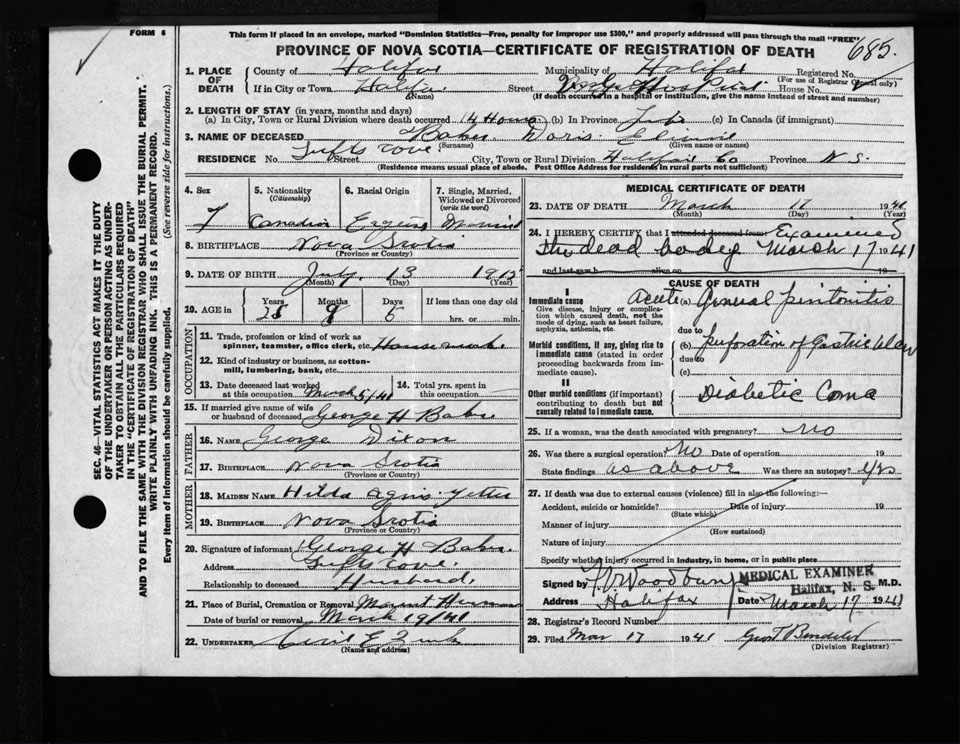 FORM 6
This form if placed in an envelope, marked "Dominion Statistics—Free, penalty for improper use $300," and properly addressed will pass through the mail "FREE"
685.
PROVINCE OF NOVA SCOTIA—CERTIFICATE OF REGISTRATION OF DEATH
SEC. 46—VITAL STATISTICS ACT MAKES IT THE DUTY
OF THE UNDERTAKER OR PERSON ACTING AS UNDER-
TAKER TO OBTAIN ALL THE PARTICULARS REQUIRED
IN THE "CERTIFICATE OF REGISTRATION OF DEATH"
AND TO FILE THE SAME WITH THE DIVISION REGISTRAR WHO SHALL ISSUE THE BURIAL PERMIT.
WRITE PLAINLY WITH UNFADING INK. THIS IS A PERMANENT RECORD.
Every item of information should be carefully supplied. (See reverse side for instructions.)
1. PLACE OF DEATH
County of Halifax Municipality of Halifax Registered No.
(For use of Registrar General only)
If in City or Town Halifax Street Hospital House No.
(Name) (If death occurred in a hospital or institution, give the name instead of street and number)
2. LENGTH OF STAY (in years, months and days)
(a) In City, Town or Rural Division where death occurred 14 Hours (b) In Province Life (c) In Canada (if immigrant)
3. NAME OF DECEASED Baker Doris
(Surname) (Given name or names)
RESIDENCE No. Tufts Cove Street City, Town or Rural Division Halifax Co Province N S.
(Residence means usual place of abode. Post Office Address for residents in rural parts not sufficient)
4. Sex F
5. Nationality (Citizenship) Canadian
6. Racial Origin English
7. Single, Married, Widowed or Divorced (write the word) Married
8. BIRTHPLACE Nova Scotia
(Province or Country)
9. DATE OF BIRTH July 13 1912
(Month) (Day) (Year)
10. AGE in Years 28 Months Days If less than one day old
hrs. or min.
OCCUPATION
11. Trade, profession or kind of work as spinner, teamster, office clerk, etc. Housework
12. Kind of industry or business, as cotton-mill, lumbering, bank, etc.
13. Date deceased last worked at this occupation March 5/41
14. Total yrs. spent in this occupation
15. If married give name of wife or husband of deceased George H Baker
FATHER
16. NAME George Dixon
17. BIRTHPLACE Nova Scotia
MOTHER
18. MAIDEN NAME Hilda Agnis
19. BIRTHPLACE Nova Scotia
(Province or Country)
20. Signature of informant George H Baker
Address Tufts Cove.
Relationship to deceased Husband
21. Place of Burial, Cremation or Removal Mount Hermon
Date of burial or removal March 19/41
22. UNDERTAKER Cecil E Zink
(Name and address)
MEDICAL CERTIFICATE OF DEATH
23. DATE OF DEATH March 17 1941
(Month) (Day) (Year)
24. I HEREBY CERTIFY that I attended deceased from Examined
the dead body March 17 1941
and last saw h alive on 19
CAUSE OF DEATH
I
Immediate cause
Give disease, injury or complication which caused death, not the mode of dying, such as heart failure, asphyxia, asthenia, etc.
Acute (a) General peritonitis
due to
Morbid conditions, if any, giving rise to immediate cause (stated in order proceeding backwards from immediate cause).
(b) perforation of Gastric ulcer
due to
(c)
II
Other morbid conditions (if important) contributing to death but not causally related to immediate cause.
Diabetic Coma
25. If a woman, was the death associated with pregnancy? No
26. Was there a surgical operation? No Date of operation 19
State findings as above Was there an autopsy? yes
27. If death was due to external causes (violence) fill in also the following:—
Accident, suicide or homicide? Date of injury 19
(State which)
Manner of injury
(How sustained)
Nature of injury
Specify whether injury occurred in industry, in home, or in public place
Signed by Woodbury MEDICAL EXAMINER M.D.
Halifax, N. S.
Address Halifax Date March 17 1941
28. Registrar's Record Number
29. Filed Mar 17 1941
(Division Registrar)